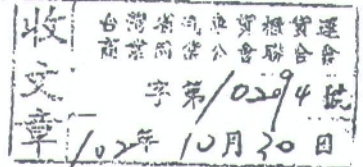 收文章
台灣省汽車貨櫃貨運
商業同業公會聯合會
字第10294號
102年10月30日